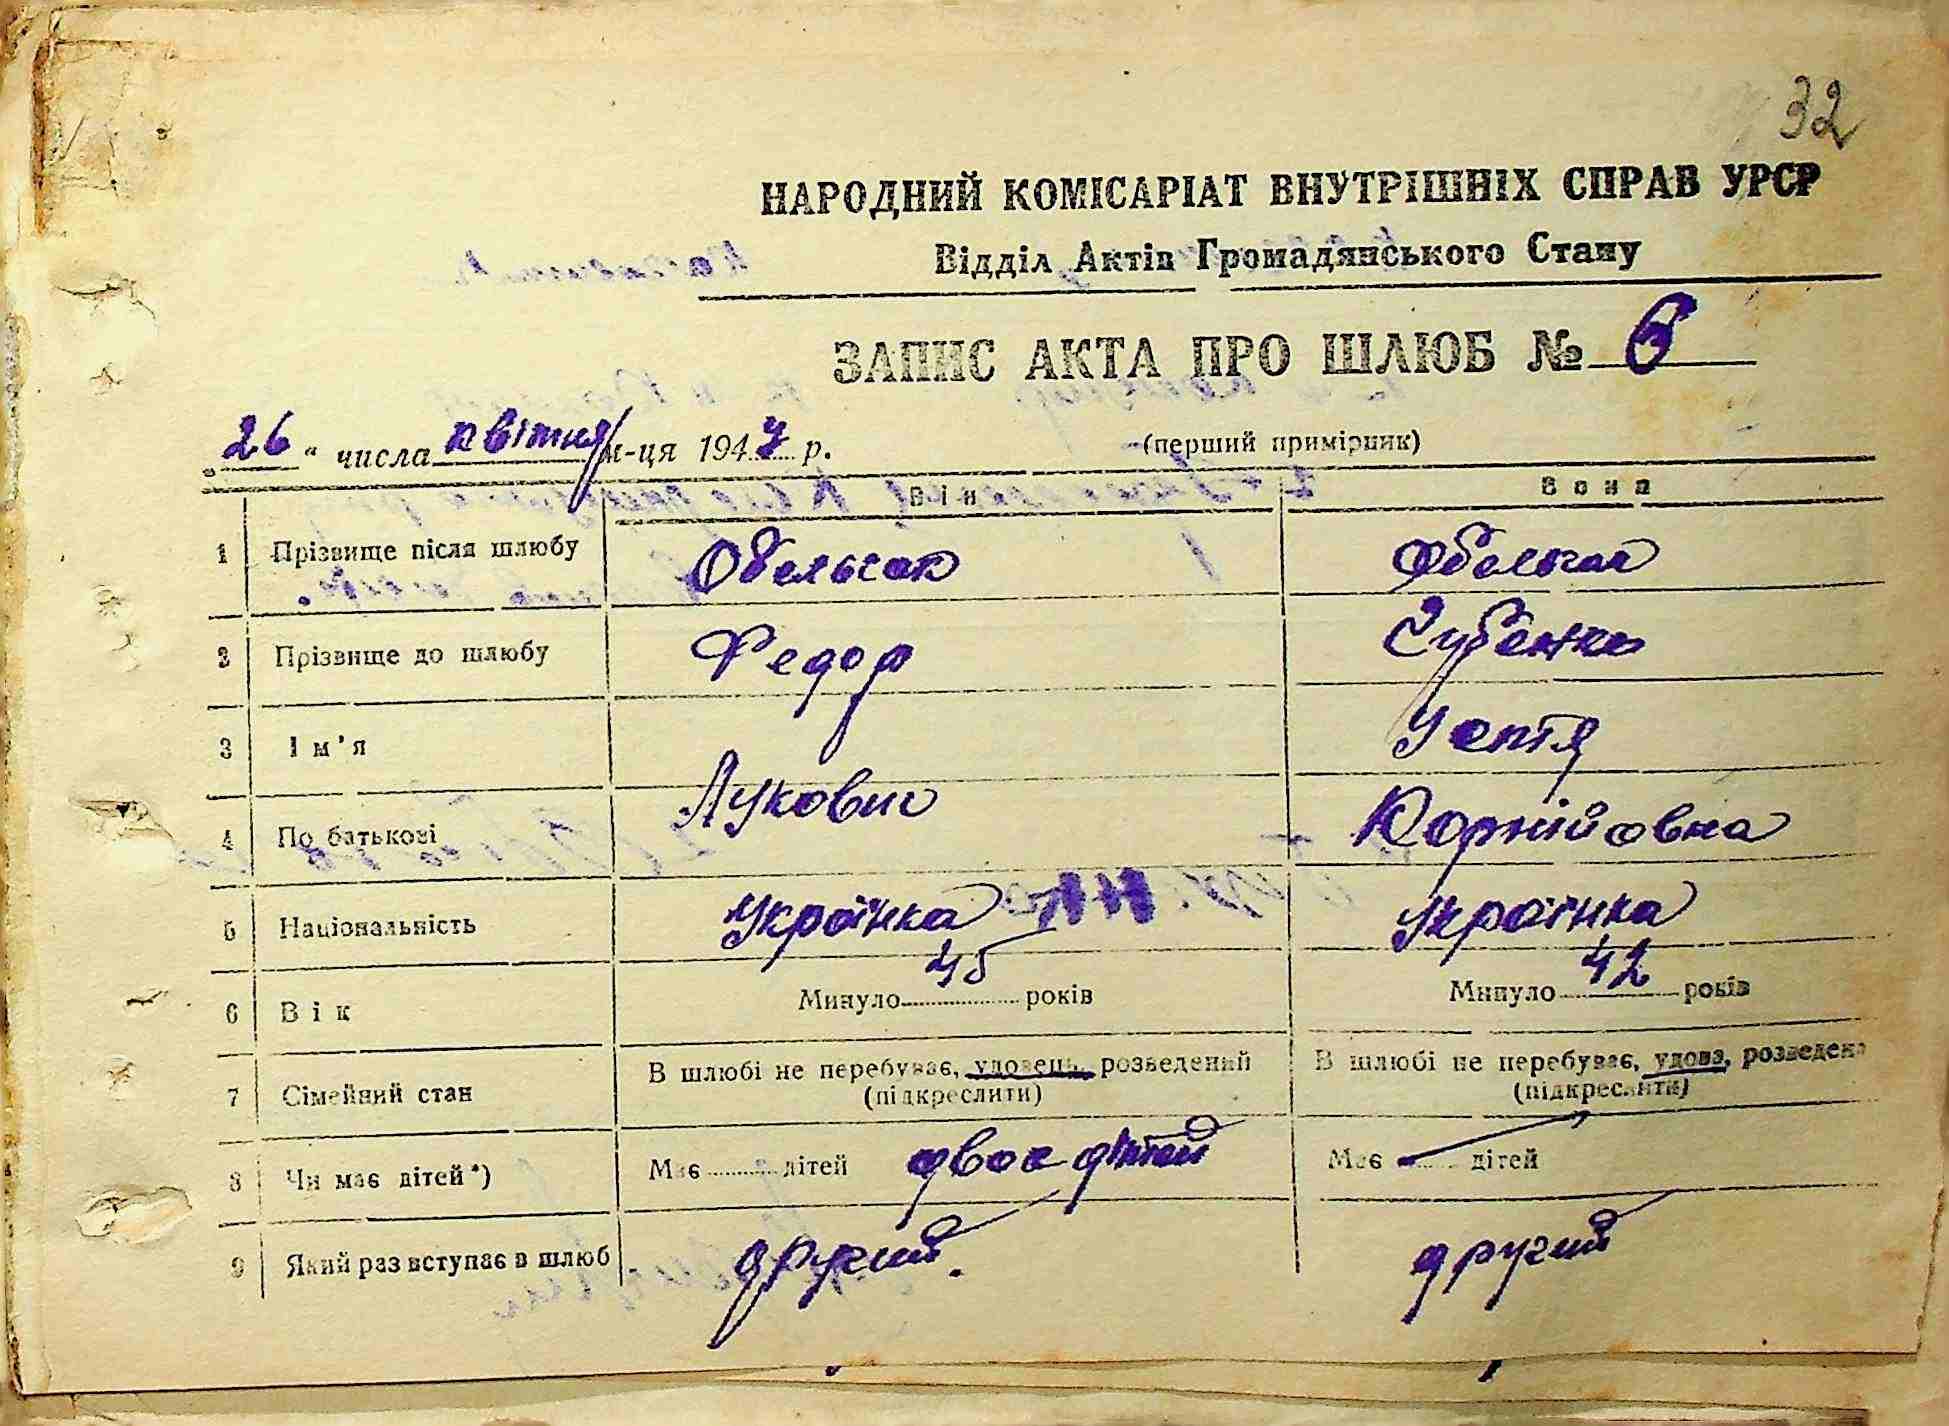 32
НАРОДНИЙ КОМІСАРІАТ ВНУТРІШНІХ СПРАВ УРСР
Відділ Актів Громадянського Стану
ЗАПИС АКТА ПРО ШЛЮБ № 6
„ 26 “ числа квітня м-ця 1947 р. (перший примірник)
Він Вона
1 Прізвище після шлюбу
2 Прізвище до шлюбу Федор Губенко
3 Ім'я Устя
4 По батькові Лукович Корнійовна
5 Національність Українка Українка
6 Вік Минуло 45 років Минуло 42 років
7 Сімейний стан В шлюбі не перебуває, удовець, розведений В шлюбі не перебуває, удова, розведена
(підкреслити) (підкреслити)
8 Чи має дітей*) Має дітей двоє дітей Має – дітей
9 Який раз вступає в шлюб другий. другий